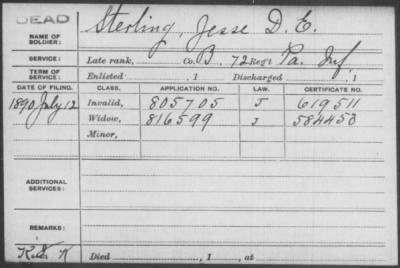 DEAD
NAME OF SOLDIER: Sterling, Jesse D. E.
SERVICE: Late rank, Co. B, 72 Reg't Pa. Inf.
TERM OF SERVICE: Enlisted , 1 Discharged , 1
DATE OF FILING. CLASS. APPLICATION NO. LAW. CERTIFICATE NO.
1890 July 12 Invalid, 805705 J 619511
Widow, 816599 J 584453
Minor,
ADDITIONAL SERVICES:
REMARKS:
Died , 1 , at